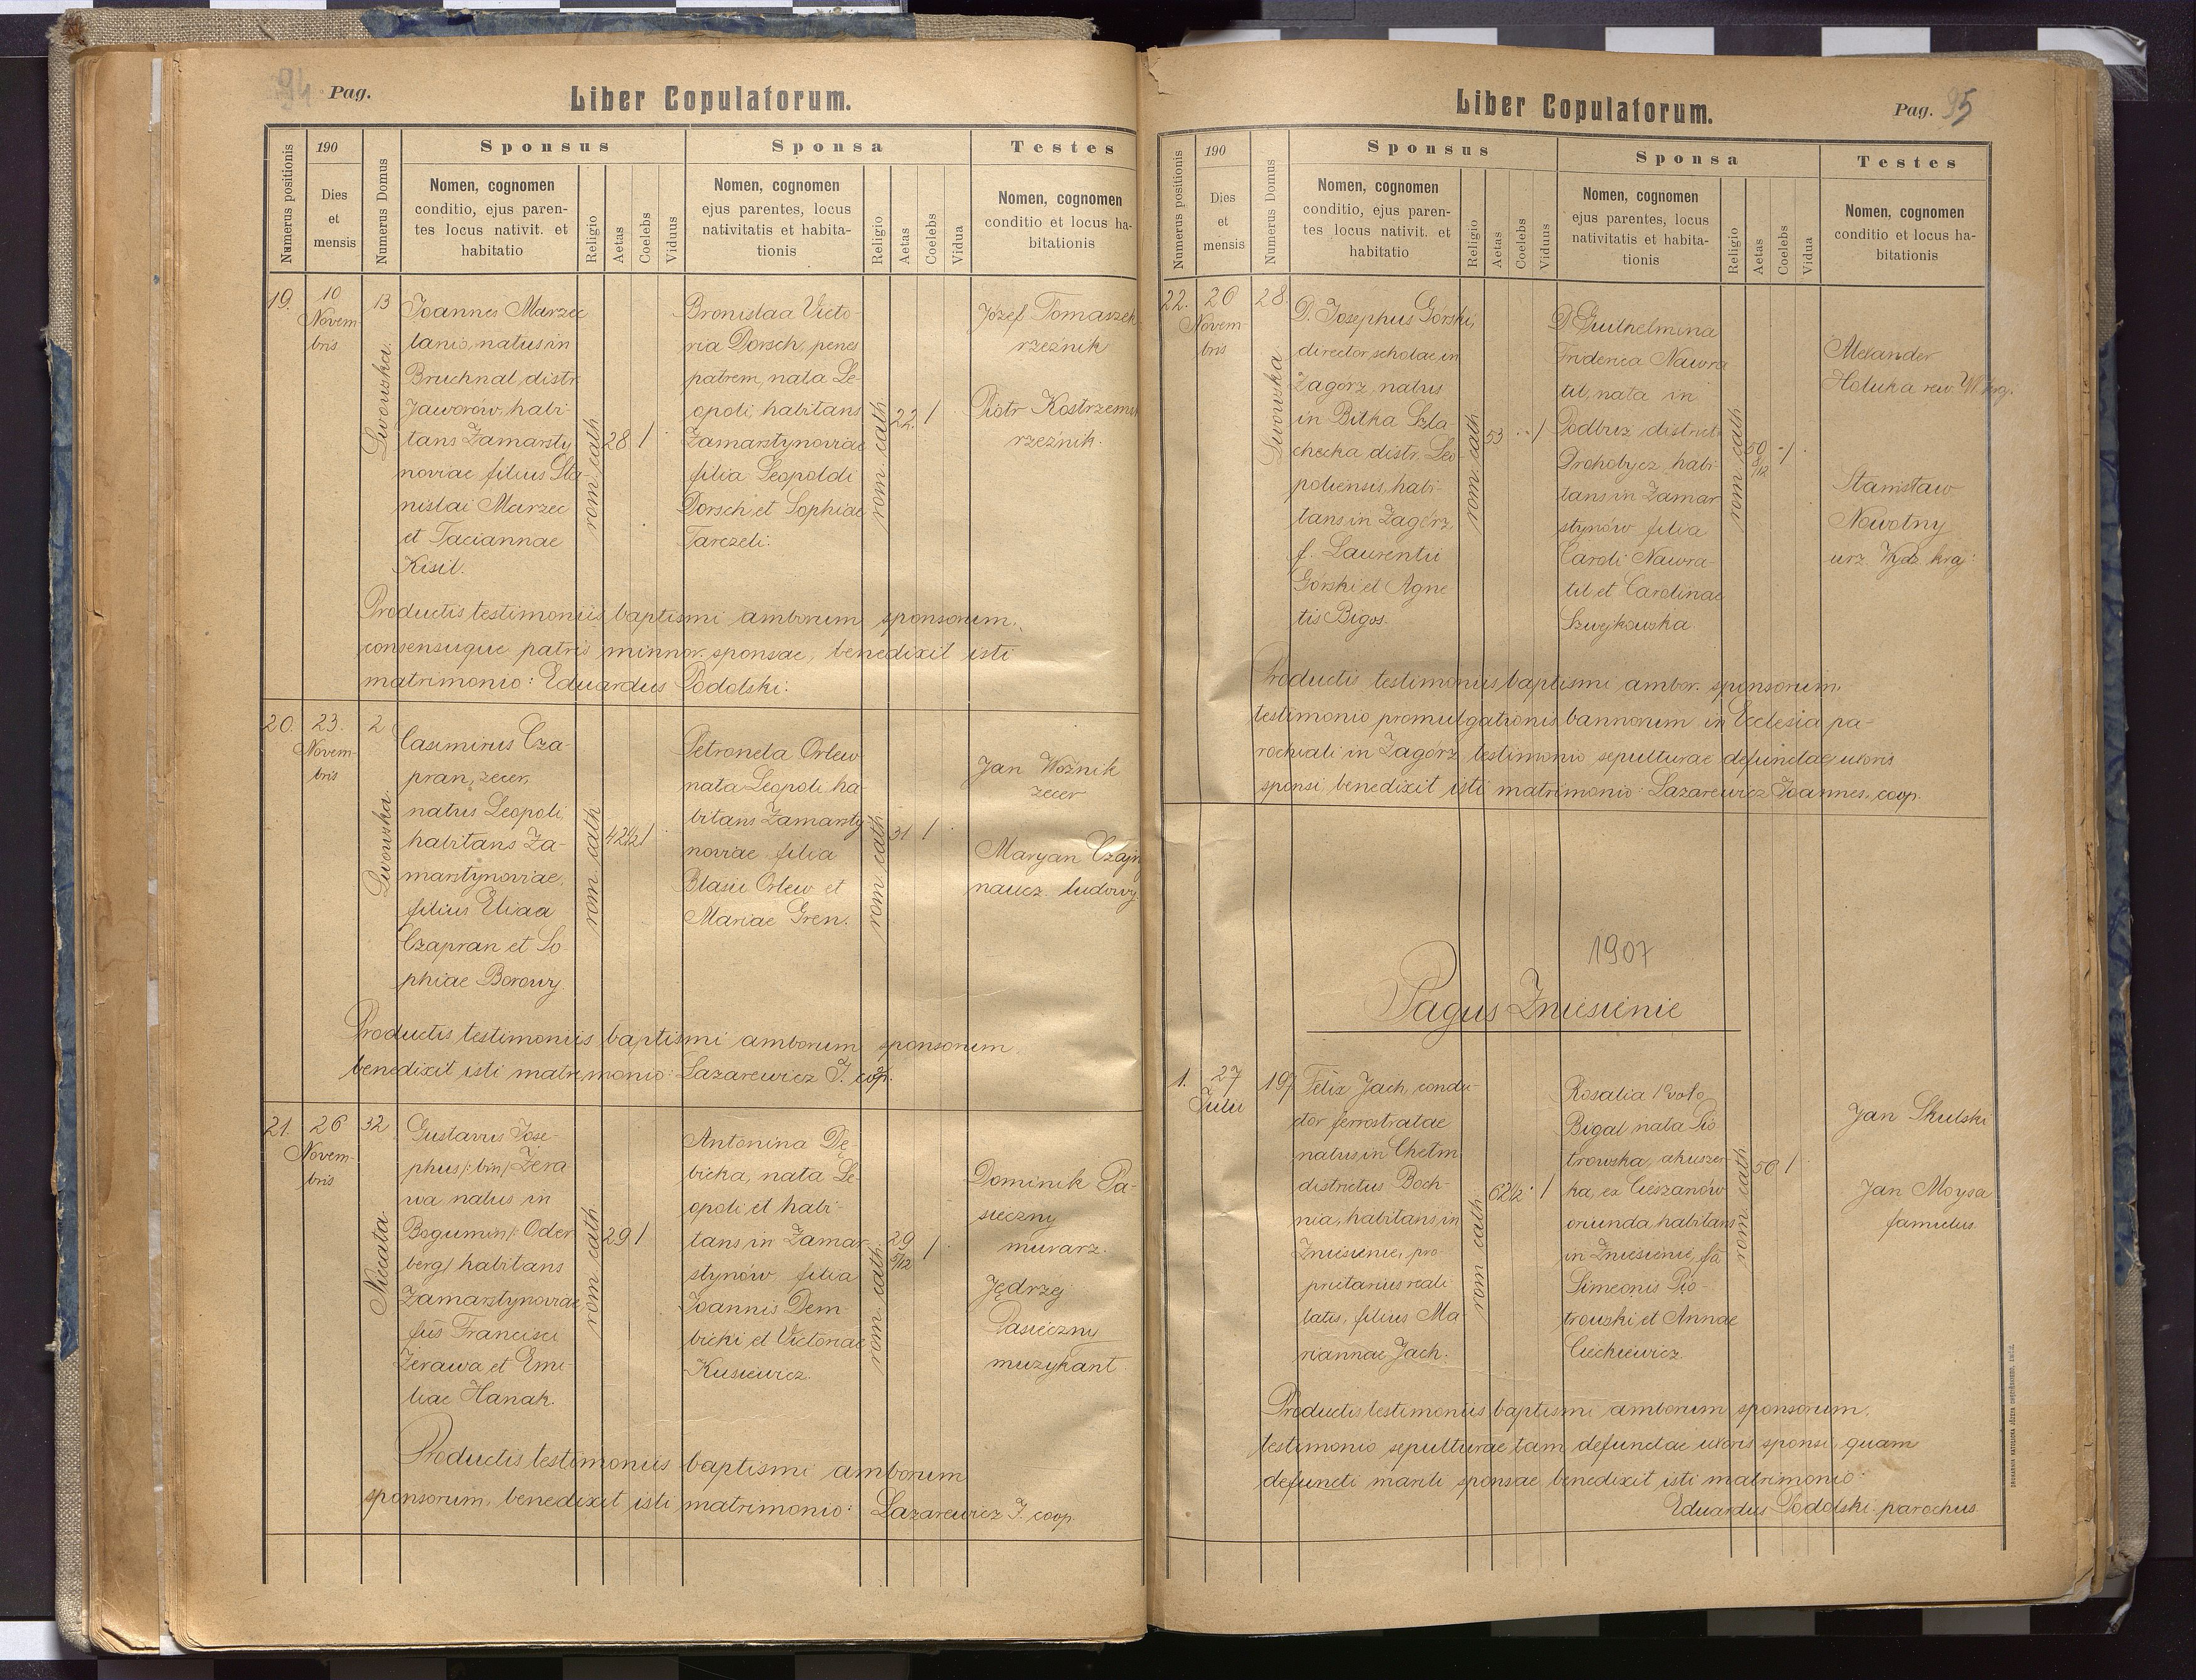 94 Pag.
Liber Copulatorum.
Numerus positionis
190
Dies
et
mensis
Numerus Domus
Sponsus
Nomen, cognomen
conditio, ejus paren-
tes locus nativit. et
habitatio
Religio
Aetas
Coelebs
Viduus
Sponsa
Nomen, cognomen
ejus parentes, locus
nativitatis et habita-
tionis
Religio
Aetas
Coelebs
Vidua
Testes
Nomen, cognomen
conditio et locus ha-
bitationis
19.
10
Novem-
bris
13
Lwowska.
Joannes Marzec
lanio, natus in
Bruchnal, distr.
Jaworów, habi-
tans Zamarsty
noviae filius Sta-
nislai Marzec
et Taciannae
Kisil.
rom. cath
28
1
Bronislaa Victo-
ria Dorsch, penes
patrem, nata Le-
opoli, habitans
Zamarstynoviae
filia Leopoldi
Dorsch et Sophiae
Tarczeli.
rom. cath
22.
1
Józef Tomaszek
rzeźnik
Piotr Kostrzems
rzeźnik.
Productis testimoniis baptismi amborum sponsorum,
consensuque patris minnor. sponsae, benedixit isti
matrimonio: Eduardus Podolski.
20.
23.
Novem-
bris
2
Lwowska.
Casimirus Cza-
pran, zecer,
natus Leopoli,
habitans Za-
marstynoviae,
filius Eliaa
Czapran et So
phiae Borowy.
rom. cath
42½
1
Petronela Orlew
nata Leopoli ha-
bitans Zamarsty-
noviae filia
Blasii Orlew et
Mariae Gren.
rom. cath
31
1
Jan Woźnik
zecer
Maryan Czajn
naucz. ludowy
Productis testimoniis baptismi amborum sponsorum
benedixit isti matrimonio: Lazarewicz J. coop.
21.
26
Novem-
bris
32
Niecała.
Gustavus Jose-
phus /: bin / Zera
wa natus in
Bogumin /: Oder
berg / habitans
Zamarstynoviae
fus Francisci
Zerawa et Emi-
liae Hanak.
rom. cath
29
1
Antonina De-
bicka, nata Le-
opoli et habi-
tans in Zamar-
stynów filia
Joannis Dem-
bicki et Victoriae
Kusiewicz.
rom. cath
29
5/12
1
Dominik Pa-
sieczny
murarz.
Jędrzej
Pasieczny
muzykant
Productis testimoniis baptismi amborum
sponsorum, benedixit isti matrimonio: Lazarewicz J. coop.
Liber Copulatorum.
Pag. 95
Numerus positionis
190
Dies
et
mensis
Numerus Domus
Sponsus
Nomen, cognomen
conditio, ejus paren-
tes locus nativit. et
habitatio
Religio
Aetas
Coelebs
Viduus
Sponsa
Nomen, cognomen
ejus parentes, locus
nativitatis et habita-
tionis
Religio
Aetas
Coelebs
Vidua
Testes
Nomen, cognomen
conditio et locus ha-
bitationis
22.
26
Novem-
bris
28.
Lwowska
D. Josephus Górski,
director scholae in
Zagórz, natus
in Bitka Szla-
checka distr. Leo-
poliensis, habi-
tans in Zagórz,
f. Laurentii
Górski et Agne
tis Bigos.
rom. cath
53
1
D. Guilhelmina
Friderica Nawra-
til, nata in
Podbuz district
Drohobycz, habi-
tans in Zamar
stynów filia
Caroli Nawra-
til et Carolinae
Szwejkowska
rom. cath
50
8/12
1
Alexander
Hołuka rew. W. kraj.
Stanisław
Nowotny
urz. Wydz. kraj:
Productis testimoniis baptismi ambor. sponsorum.
testimonio promulgationis bannorum in Ecclesia pa-
rochiali in Zagórz, testimonio sepulturae defunctae uxoris
sponsi, benedixit isti matrimonio: Lazarewicz Joannes, coop.
1907
Pagus Zniesienie
1.
27
Julii
197
Felix Jach, condu-
ctor ferrostratae
natus in Chełm
districtus Boch-
nia, habitans in
Zniesienie, pro-
prietarius reali
tatis, filius Ma
riannae Jach.
rom. cath
62½
1
Rosalia 1º voto
Bigal nata Pio
trowska, akuszer-
ka, ex Cieszanów
oriunda, habitans
in Zniesienie, fa
Simeonis Pio-
trowski et Annae
Ciechiewicz.
rom. cath
50
1
Jan Skulski
Jan Moysa
famulus
Productis testimoniis baptismi amborum sponsorum,
testimonio sepulturae tam defunctae uxoris sponsi, quam
defuncti mariti sponsae, benedixit isti matrimonio:
Eduardus Podolski parochus.